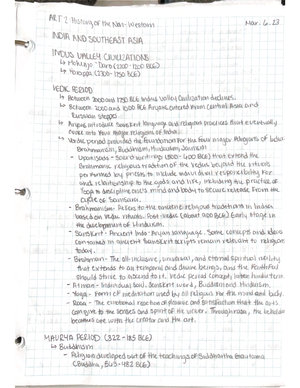 ART 2: History of the Non-Western
Mar. 6. 23
INDIA AND SOUTHEAST ASIA
INDUS VALLEY CIVILIZATIONS
↳ Mohenjo-Daro (2300-1200 BCE)
↳ Harappa (2300-1750 BCE)
VEDIC PERIOD
↳ Between 2000 and 1750 BCE Indus Valley Civilization declines.
↳ Between 2000 and 1500 BCE Aryans entered from Central Asia and
Russian steppes
↳ Aryans introduce Sanskrit language and religious practices that eventually
evolve into four major religions of India.
↳ Vedic period provided the foundation for the four major religions of India:
Brahmanism, Buddhism, Hinduism, Jainism
- Upanishads - Sacred writings (800-600 BCE) that extend the
Brahmanic religious tradition of the Vedas beyond the rituals
performed by priests to include individual responsibility for
one's relationship to the gods and life, including the practice of
Yoga to discipline one's mind and body to secure release from the
cycle of Samsara.
- Brahmanism - Refers to the ancient religious traditions in India
based on Vedic rituals. Post-Vedic (about 600 BCE) Early stage in
the development of Hinduism.
- Sanskrit - Ancient Indo-Aryan language. Some concepts and ideas
contained in ancient Sanskrit scripts remain relevant to religion
today.
- Brahman - The all-inclusive, universal, and eternal spiritual reality
that extends to all temporal and divine beings, and the faithful
should strive to ascend to it. Vedic period concept, later Hinduism
- Atman - Individual soul, Sanskrit word, Buddhism and Hinduism.
- Yoga - Form of meditation used by all religions for the mind and body.
- Rasa - The emotional reaction of pleasure and satisfaction that the arts
can give to the senses and spirit of the viewer. Through rasa, the beholder
becomes one with the creator and the art.
MAURYA PERIOD (322-185 BCE)
↳ Buddhism
- Religion developed out of the teachings of Siddhartha Gautama
(Buddha, 563-483 BCE)